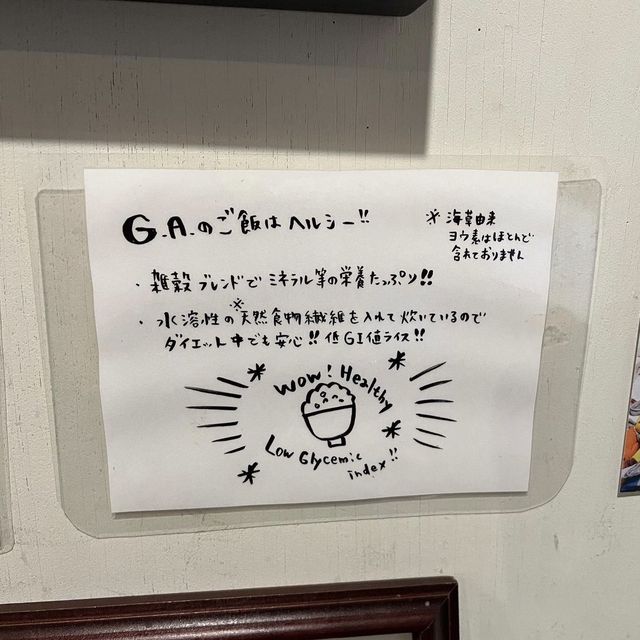 G.A.のご飯はヘルシー!!
※ 海草由来
ヨウ素はほとんど
含れておりません
・雑穀ブレンドで ミネラル等の栄養たっぷり!!
※
・水溶性の天然食物繊維を入れて炊いているので
ダイエット中でも安心!! 低GI値ライス!!
Wow! Healthy
Low Glycemic
index!!